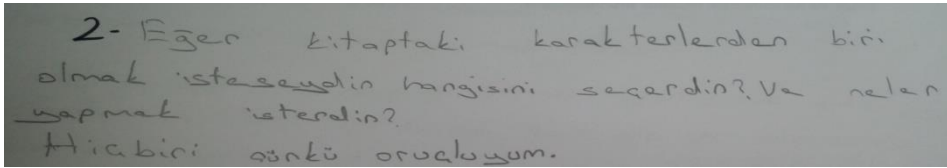 2- Eğer kitaptaki karakterlerden biri
olmak isteseydin hangisini seçerdin? Ve neler
yapmak isterdin?
Hiçbiri çünkü oruçluyum.